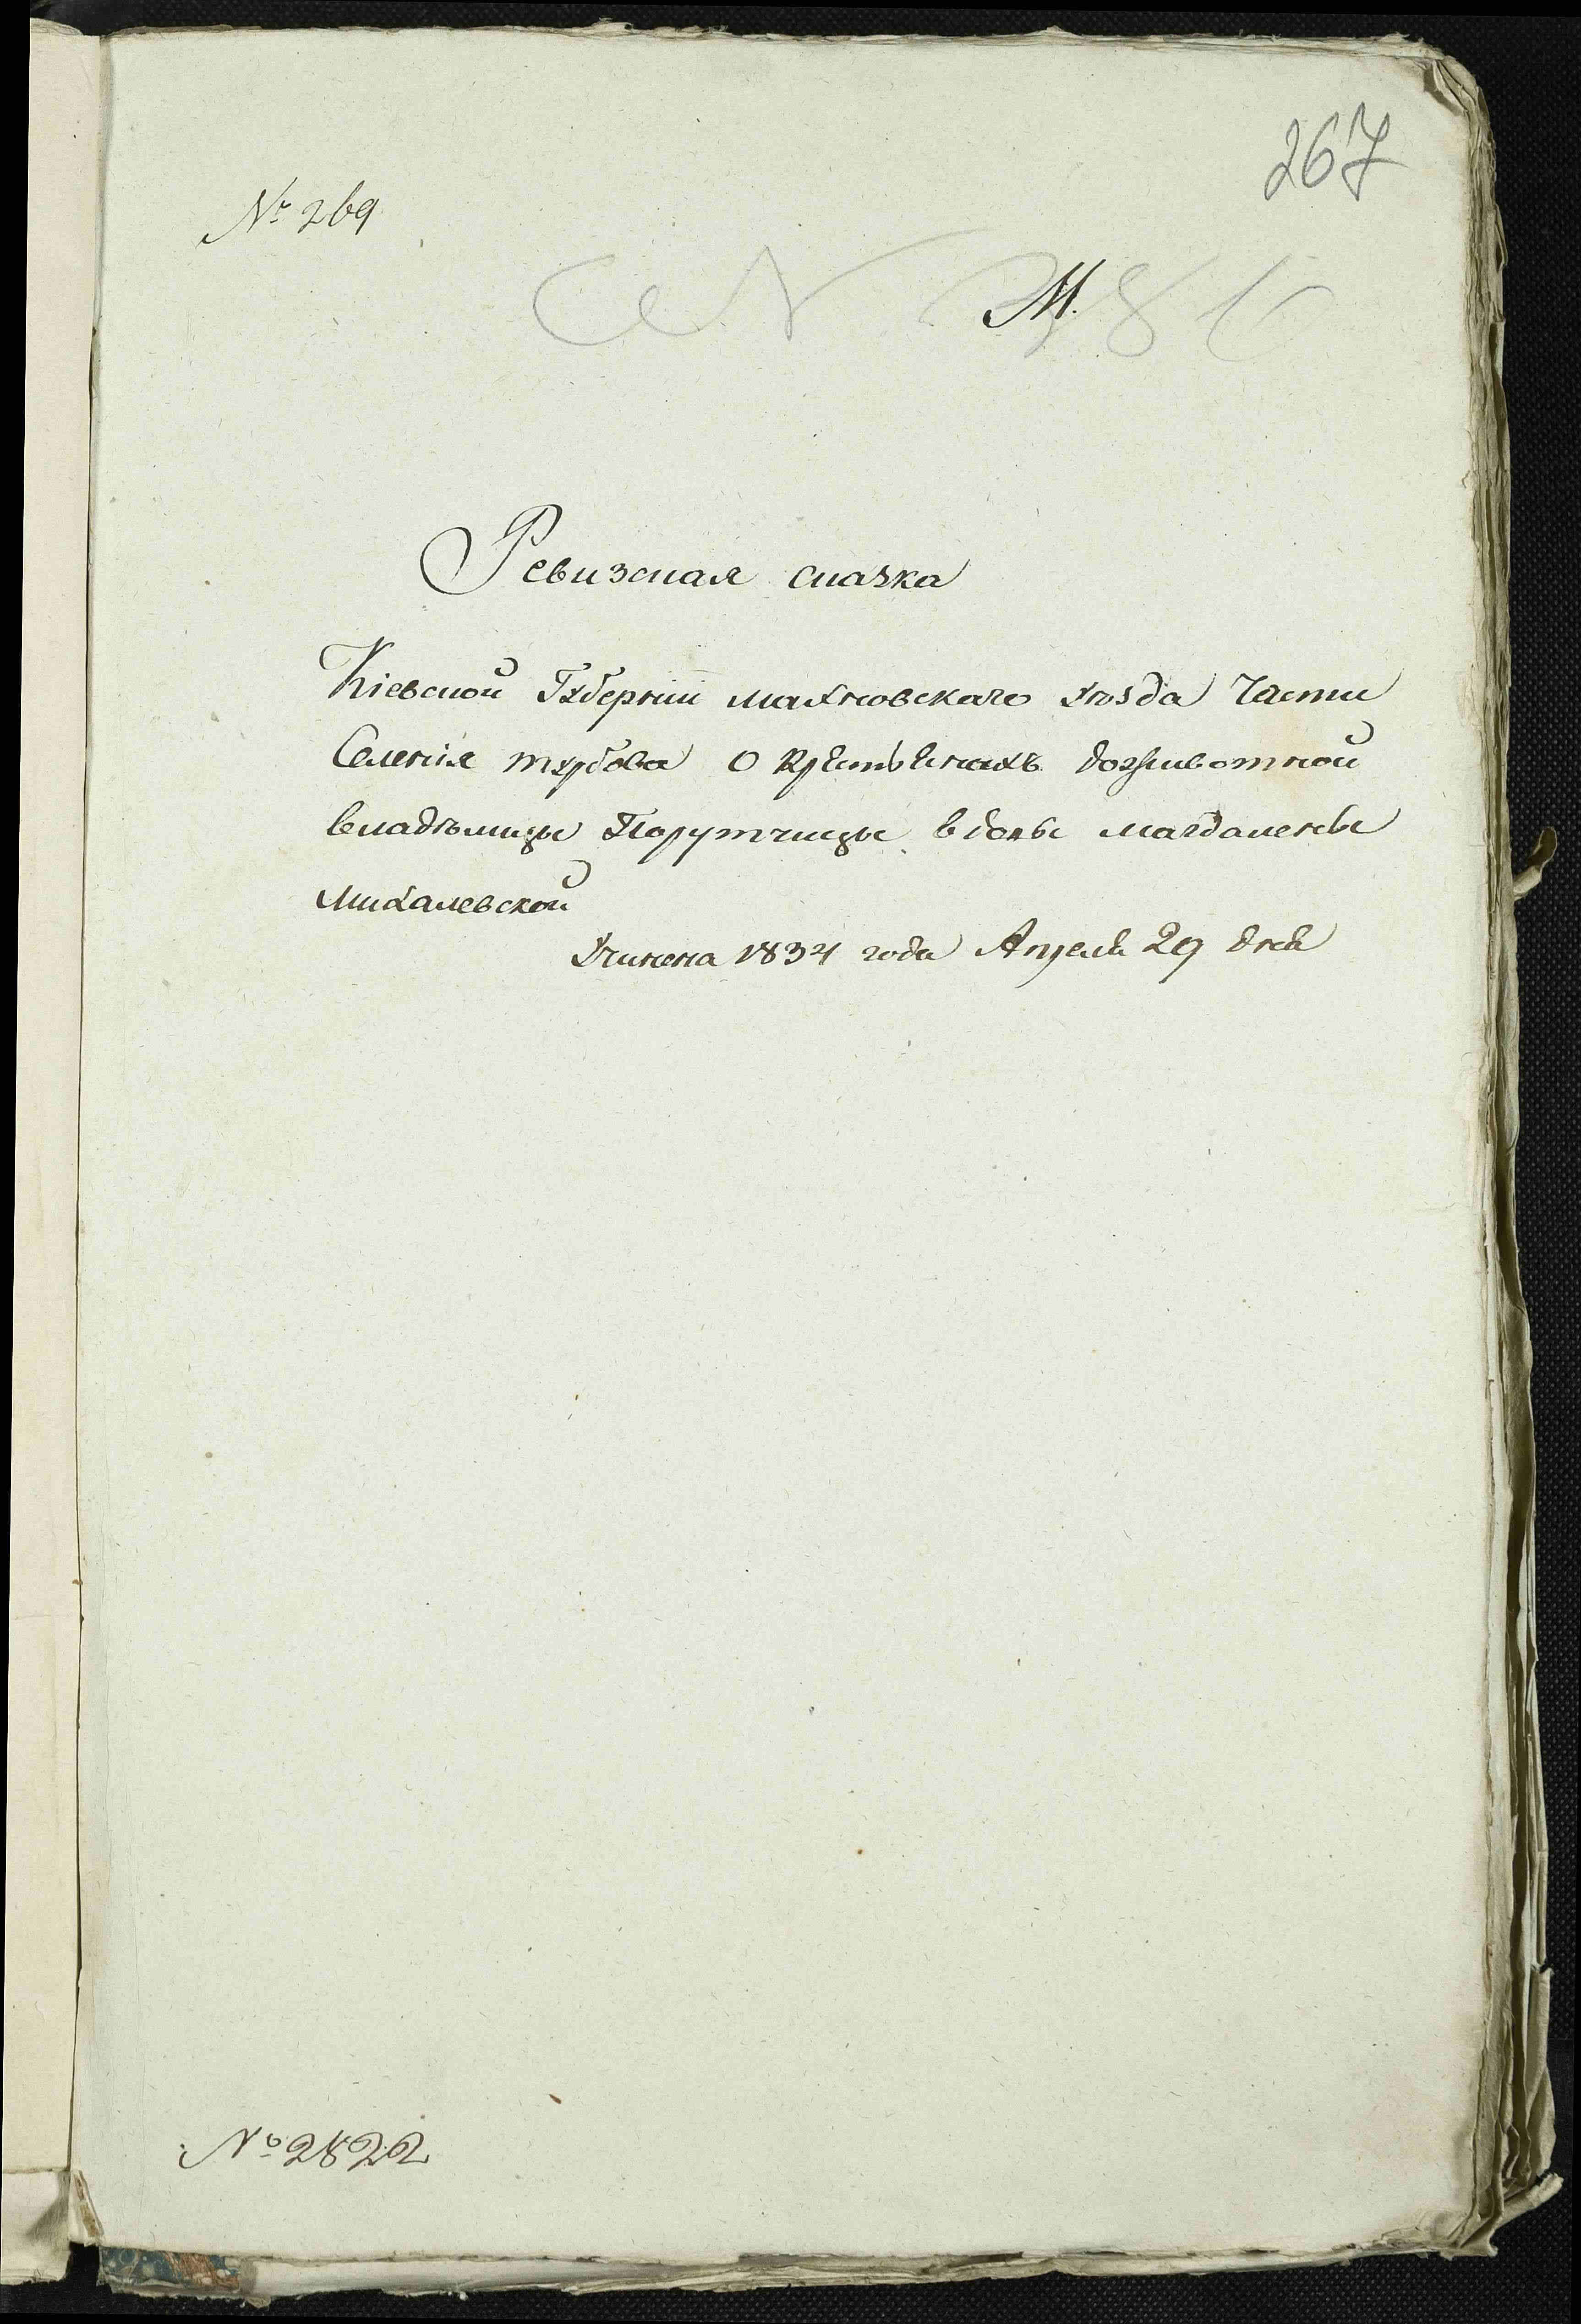 267
№ 269
М.
Ревизская сказка
Кіевской Губерніи махновскаго уѣзда Части
Селенія турбова О крестьянахъ доживотной
владѣлицы Поручицы вдовы магдалены
Михалевской
Учинена 1834 года Апреля 29 дня
№ 2822